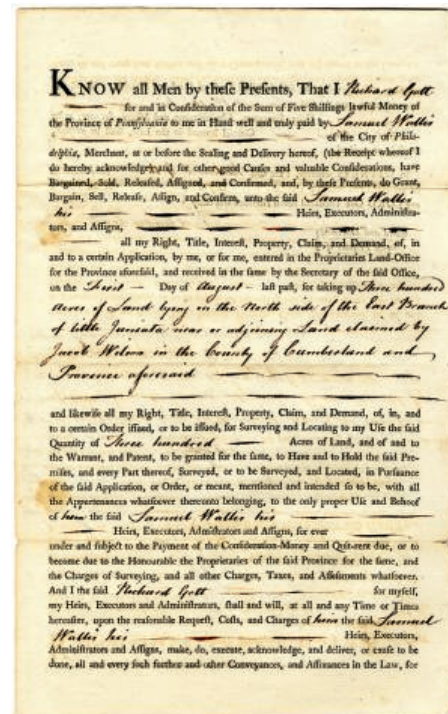 KNOW all Men by theſe Preſents, That I Richard Gott
for and in Conſideration of the Sum of Five Shillings lawful Money of
the Province of Pennſylvania to me in Hand well and truly paid by Samuel Wallis
of the City of Phila-
delphia, Merchant, at or before the Sealing and Delivery hereof, (the Receipt whereof I
do hereby acknowledge) and for other good Cauſes and valuable Conſiderations, have
Bargained, Sold, Releaſed, Aſſigned, and Confirmed, and, by theſe Preſents, do Grant,
Bargain, Sell, Releaſe, Aſſign, and Confirm, unto the ſaid Samuel Wallis
his Heirs, Executors, Adminiſtra-
tors, and Aſſigns,
all my Right, Title, Intereſt, Property, Claim, and Demand, of, in
and to a certain Application, by me, or for me, entered in the Proprietaries Land-Office
for the Province aforeſaid, and received in the ſame by the Secretary of the ſaid Office,
on the Day of Auguſt laſt paſt, for taking up Three hundred
Acres of Land lying in the North side of the East Branch
of little Juneata near or adjoining Land claimed by
Jacob in the County of Cumberland and
Province aforesaid
and likewiſe all my Right, Title, Intereſt, Property, Claim, and Demand, of, in, and
to a certain Order iſſued, or to be iſſued, for Surveying and Locating to my Uſe the ſaid
Quantity of Three hundred Acres of Land, and of and to
the Warrant, and Patent, to be granted for the ſame, to Have and to Hold the ſaid Pre-
miſes, and every Part thereof, Surveyed, or to be Surveyed, and Located, in Purſuance
of the ſaid Application, or Order, or meant, mentioned and intended ſo to be, with all
the Appertenances whatſoever thereonto belonging, to the only proper Uſe and Behoof
of him the ſaid Samuel Wallis his
Heirs, Executors, Adminiſtrators and Aſſigns, for ever
under and ſubject to the Payment of the Conſideration-Money and Quit-rent due, or to
become due to the Honourable the Proprietaries of the ſaid Province for the ſame, and
the Charges of Surveying, and all other Charges, Taxes, and Aſſeſſments whatſoever.
And I the ſaid Richard Gott for myſelf,
my Heirs, Executors and Adminiſtrators, ſhall and will, at all and any Time or Times
hereafter, upon the reaſonable Requeſt, Coſts, and Charges of him the ſaid Samuel
Wallis his Heirs, Executors,
Adminiſtrators and Aſſigns, make, do, execute, acknowledge, and deliver, or cauſe to be
done, all and every ſuch further and other Conveyances, and Aſſurances in the Law, for